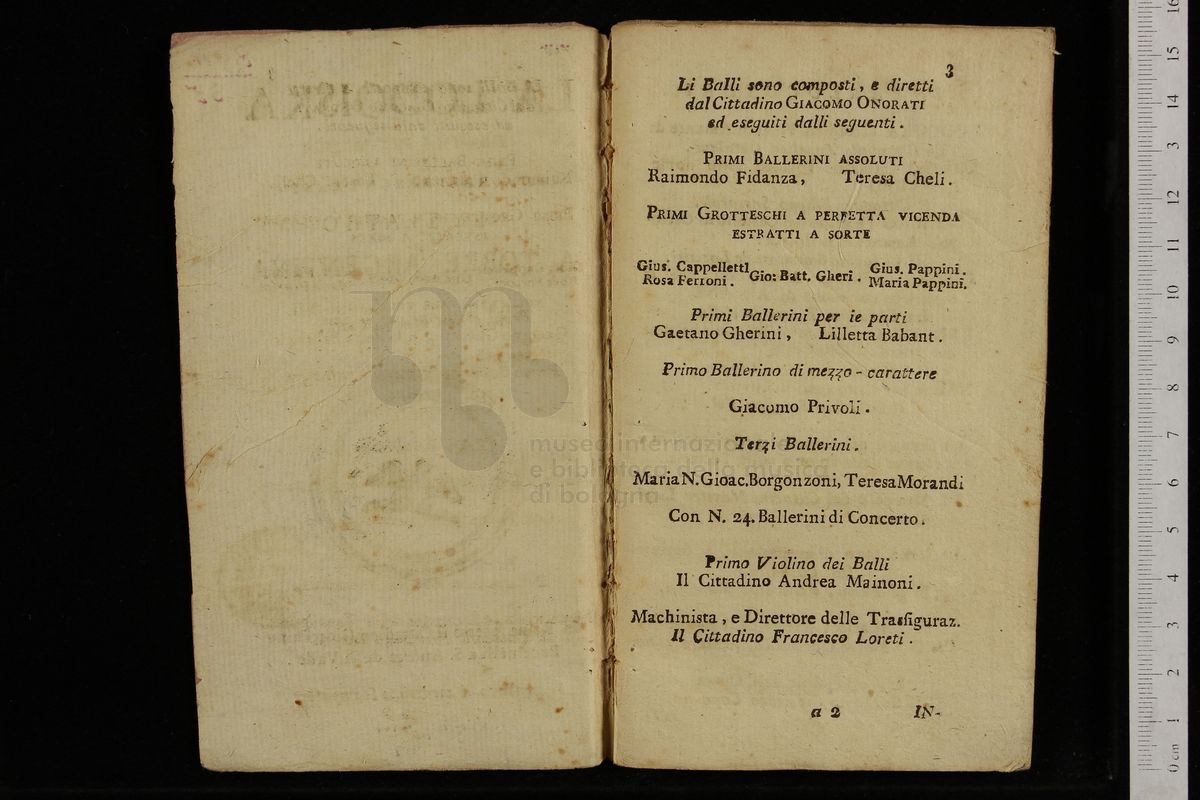 3
Li Balli sono composti, e diretti
dal Cittadino GIACOMO ONORATI
ed eseguiti dalli seguenti.
PRIMI BALLERINI ASSOLUTI
Raimondo Fidanza, Teresa Cheli.
PRIMI GROTTESCHI A PERFETTA VICENDA
ESTRATTI A SORTE
Gius. Cappelletti Gio: Batt. Gheri. Gius. Pappini.
Rosa Ferroni. Maria Pappini.
Primi Ballerini per ie parti
Gaetano Gherini, Lilletta Babant.
Primo Ballerino di mezzo - carattere
Giacomo Privoli.
Terzi Ballerini.
Maria N. Gioac. Borgonzoni, Teresa Morandi
Con N. 24. Ballerini di Concerto.
Primo Violino dei Balli
Il Cittadino Andrea Mainoni.
Machinista, e Direttore delle Trasfiguraz.
Il Cittadino Francesco Loreti.
a 2 IN-
museo internazionale
e biblioteca della musica
di bologna
0 cm 1 2 3 4 5 6 7 8 9 10 11 12 13 14 15 16